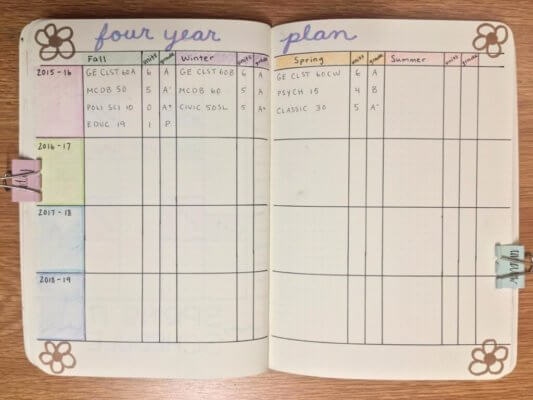 four year plan
Fall units grade Winter units grade Spring units grade Summer units grade
2015-16 GE CLST 60A 6 A GE CLST 60B 6 A GE CLST 60CW 6 A
MCDB 50 5 A- MCDB 60 5 A PSYCH 15 4 B
POLI SCI 10 0 A+ CIVIC 50SL 5 A+ CLASSIC 30 5 A-
EDUC 19 1 P
2016-17
2017-18
2018-19